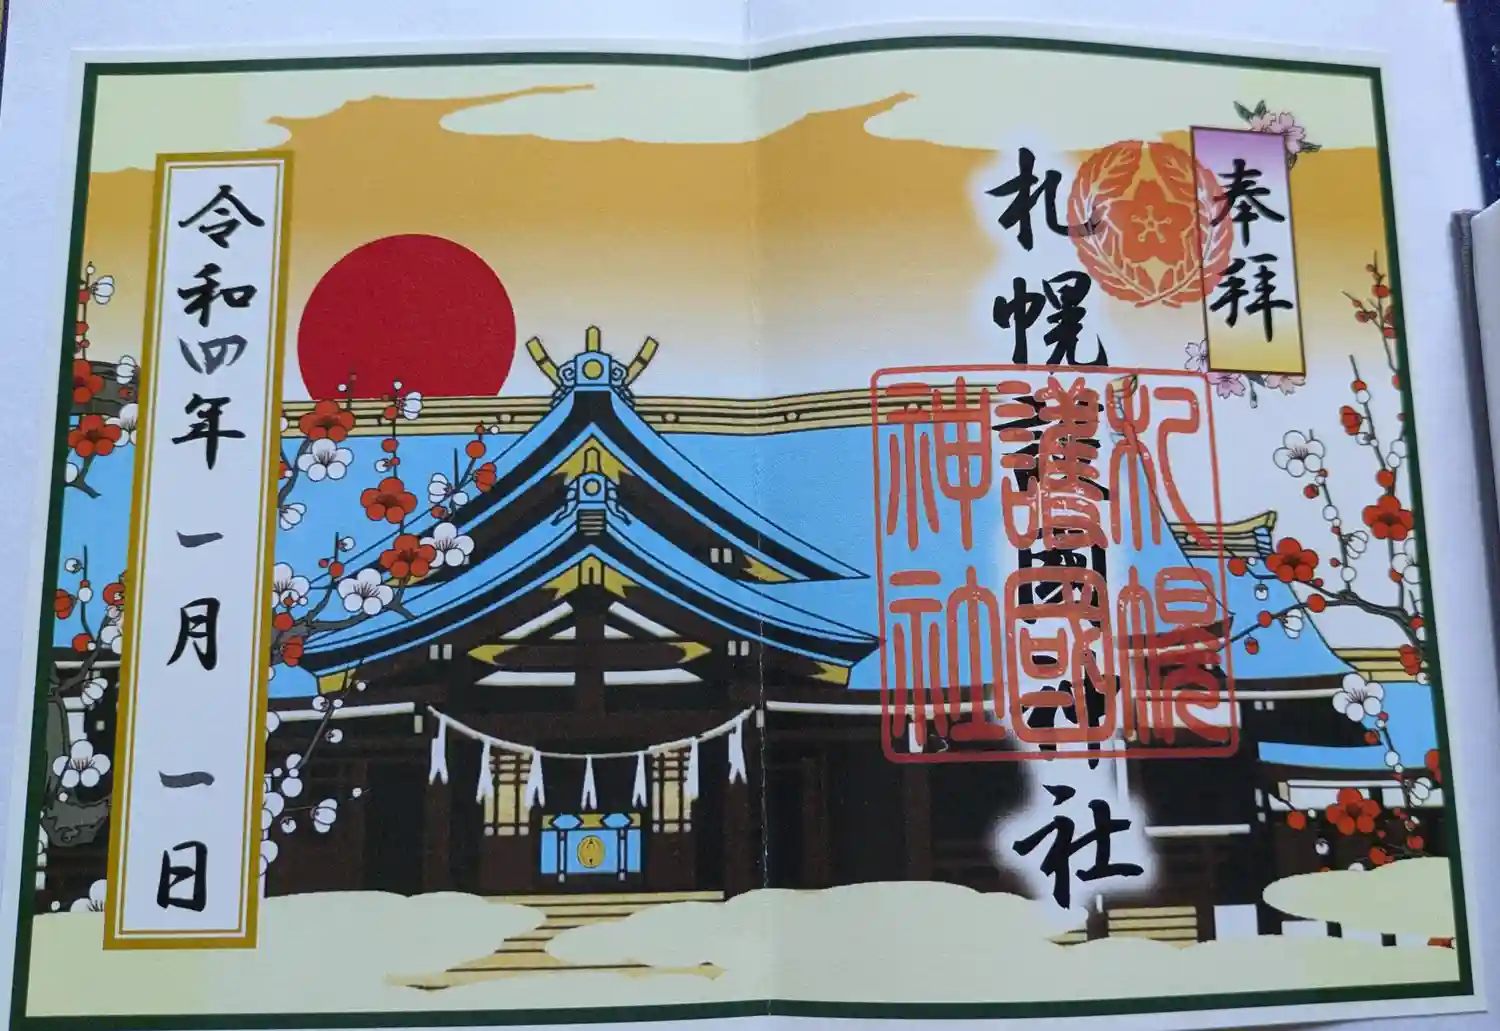 奉拝
札幌護國神社
札幌
護國
神社
令和四年一月一日